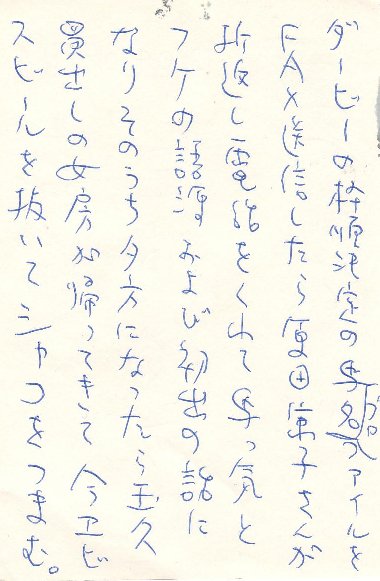 ダービーの枠順決定の馬名入ファイルを
FAX送信したら夏田
折返し電話をくれて馬っ気と
フケの語源および初出の話に
なりそのうち夕方になったら玉久
買出しの女房が帰ってきて今ヱビ
スビールを抜いてシャコをつまむ。